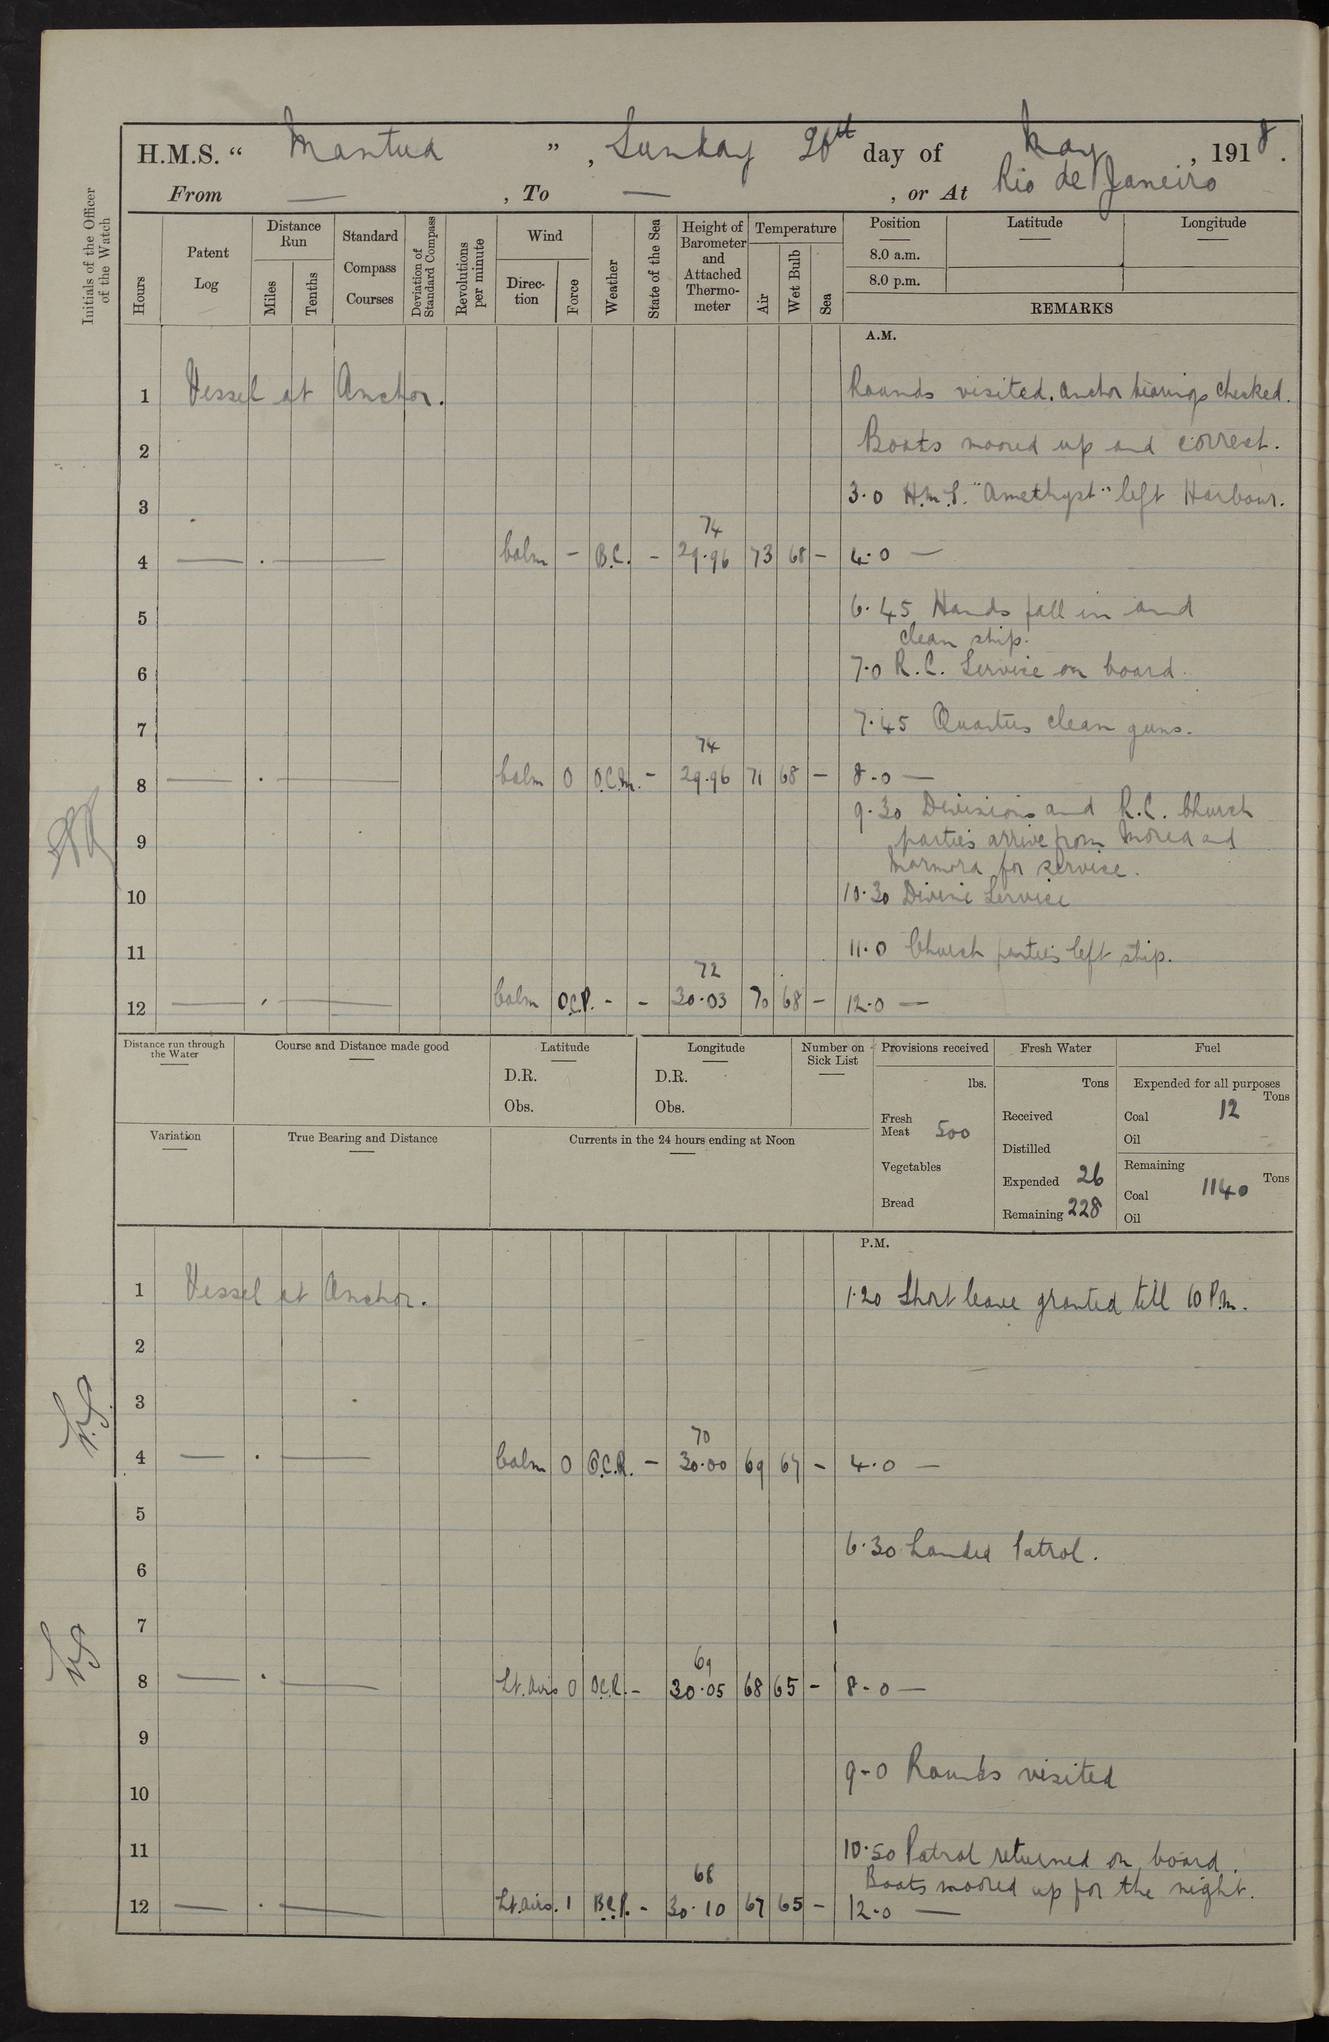 H.M.S. " Mantua ", Sunday 26th day of May, 1918.
From — , To — , or At Rio de Janeiro
Initials of the Officer of the Watch
Hours
Patent Log
Distance Run
Miles
Tenths
Standard Compass Courses
Deviation of Standard Compass
Revolutions per minute
Wind
Direction
Force
Weather
State of the Sea
Height of Barometer and Attached Thermometer
Temperature
Air
Wet Bulb
Sea
Position
8.0 a.m.
8.0 p.m.
Latitude
Longitude
REMARKS
A.M.
1 Vessel at Anchor. Rounds visited. Anchor bearings checked.
2 Boats moored up and correct.
3 3.0 H.M.S. "Amethyst" left Harbour.
74
4 — . — Calm – B.C. – 29.96 73 68 – 4.0 —
5 6.45 Hands fall in and
clean ship.
6 7.0 R.C. Service on board.
7 7.45 Quarters clean guns.
74
8 — . — Calm 0 O.C.M. – 29.96 71 68 – 8.0 —
9.30 Divisions and R.C. Church
9 parties arrive from Morea and
Marmora for service.
10 10.30 Divine Service
11 11.0 Church parties left ship.
72
12 — . — Calm O.C.P. – – 30.03 70 68 – 12.0 —
Distance run through the Water
Course and Distance made good
Latitude
D.R.
Obs.
Longitude
D.R.
Obs.
Number on Sick List
Provisions received
lbs.
Fresh Meat 500
Vegetables
Bread
Fresh Water
Tons
Received
Distilled
Expended 26
Remaining 228
Fuel
Expended for all purposes
Tons
Coal 12
Oil
Remaining
Tons
Coal 1140
Oil
Variation
True Bearing and Distance
Currents in the 24 hours ending at Noon
P.M.
1 Vessel at Anchor. 1.20 Short leave granted till 10 P.m.
2
3
70
4 — . — Calm 0 O.C.R. – 30.00 69 67 – 4.0 —
5
6.30 Landed Patrol.
6
7
69
8 — . — Lt. Airs 0 O.C.R. – 30.05 68 65 – 8.0 —
9
9.0 Rounds visited
10
11 10.50 Patrol returned on board.
68
Boats moored up for the night.
12 — . — Lt. Airs. 1 B.C.P. – 30.10 67 65 – 12.0 —